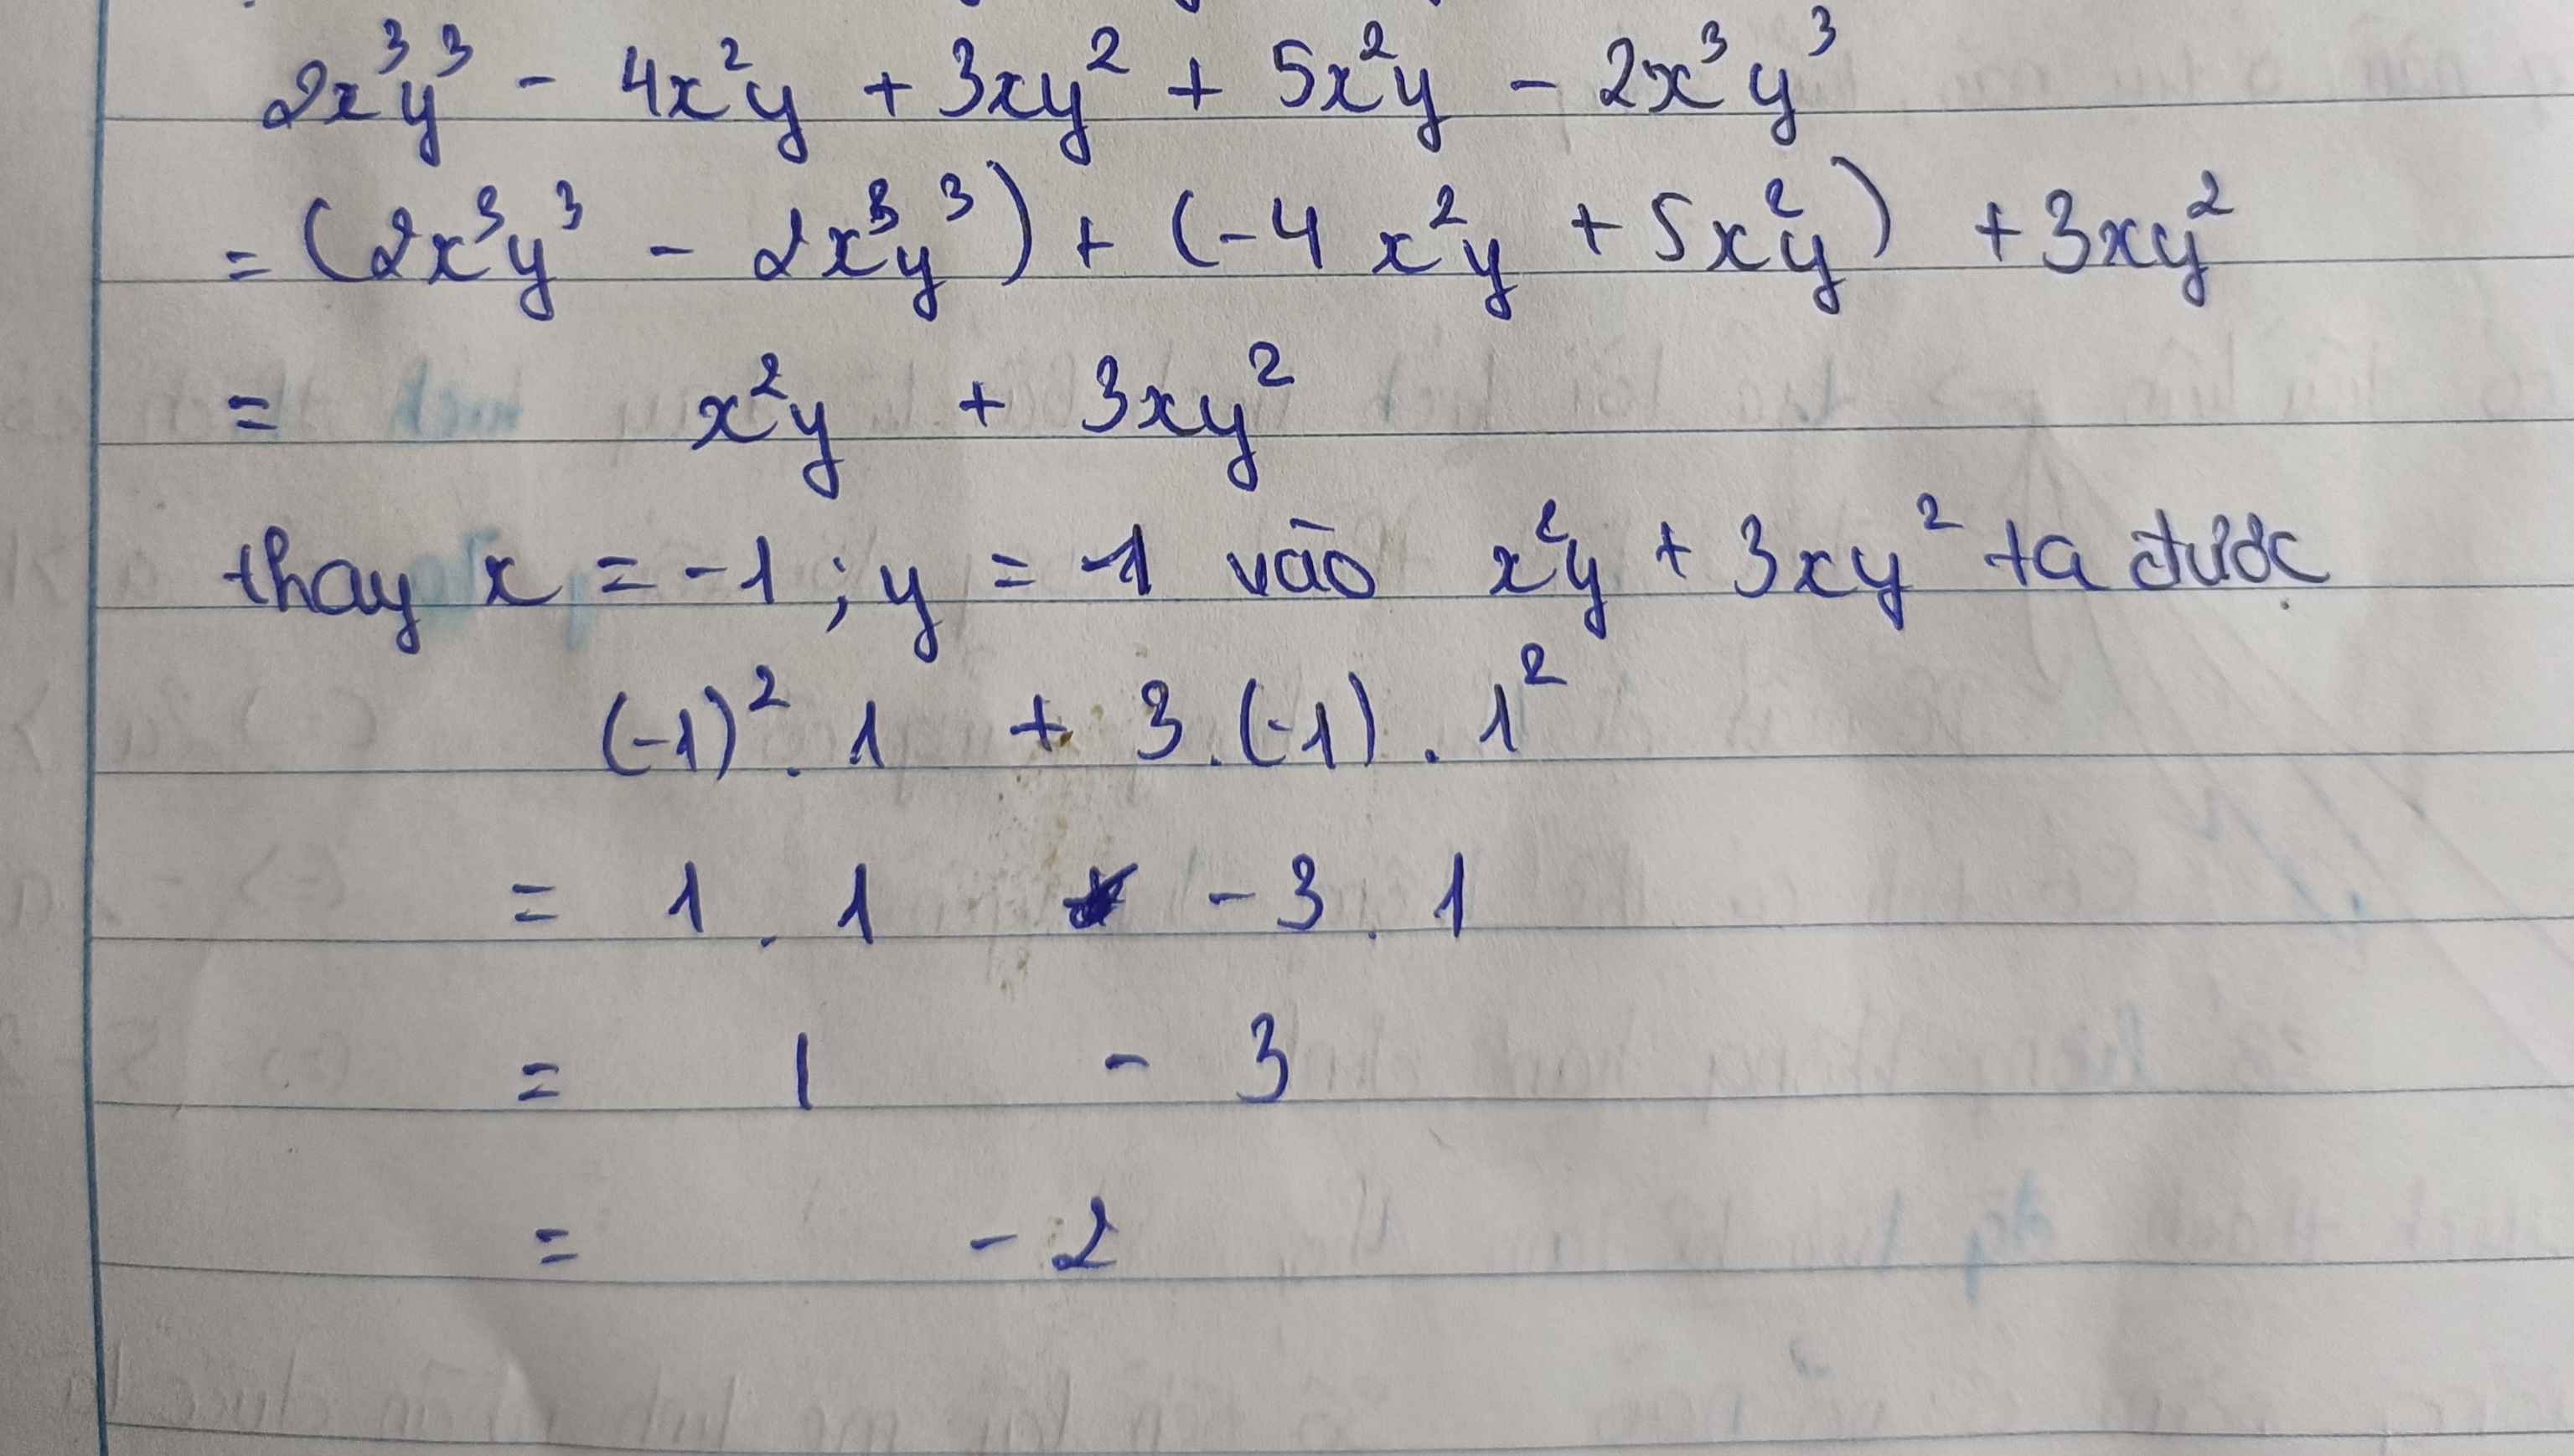 2x³y³ - 4x²y + 3xy² + 5x²y - 2x³y³
= (2x³y³ - 2x³y³) + (-4x²y + 5x²y) + 3xy²
= x²y + 3xy²
thay x = -1 ; y = 1 vào x²y + 3xy² ta được
(-1)² . 1 + 3 . (-1) . 1²
= 1 . 1 - 3 . 1
= 1 - 3
= - 2